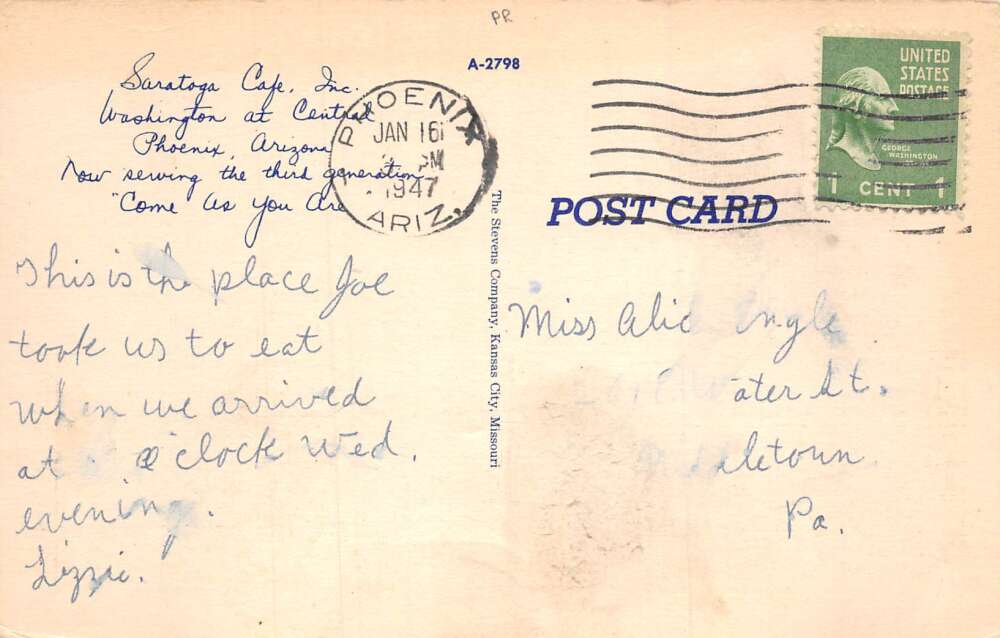 PR
Saratoga Cafe, Inc.
Washington at Central
Phoenix, Arizona
Now serving the third generation
"Come As You Are
A-2798
PHOENIX
JAN 16
PM
1947
ARIZ.
UNITED
STATES
POSTAGE
GEORGE
WASHINGTON
1 CENT 1
POST CARD
The Stevens Company, Kansas City, Missouri
This is the place Joe
took us to eat
when we arrived
at o'clock Wed.
evening.
Lizzie.
Miss Alic Engle
ater St.
letown
Pa.